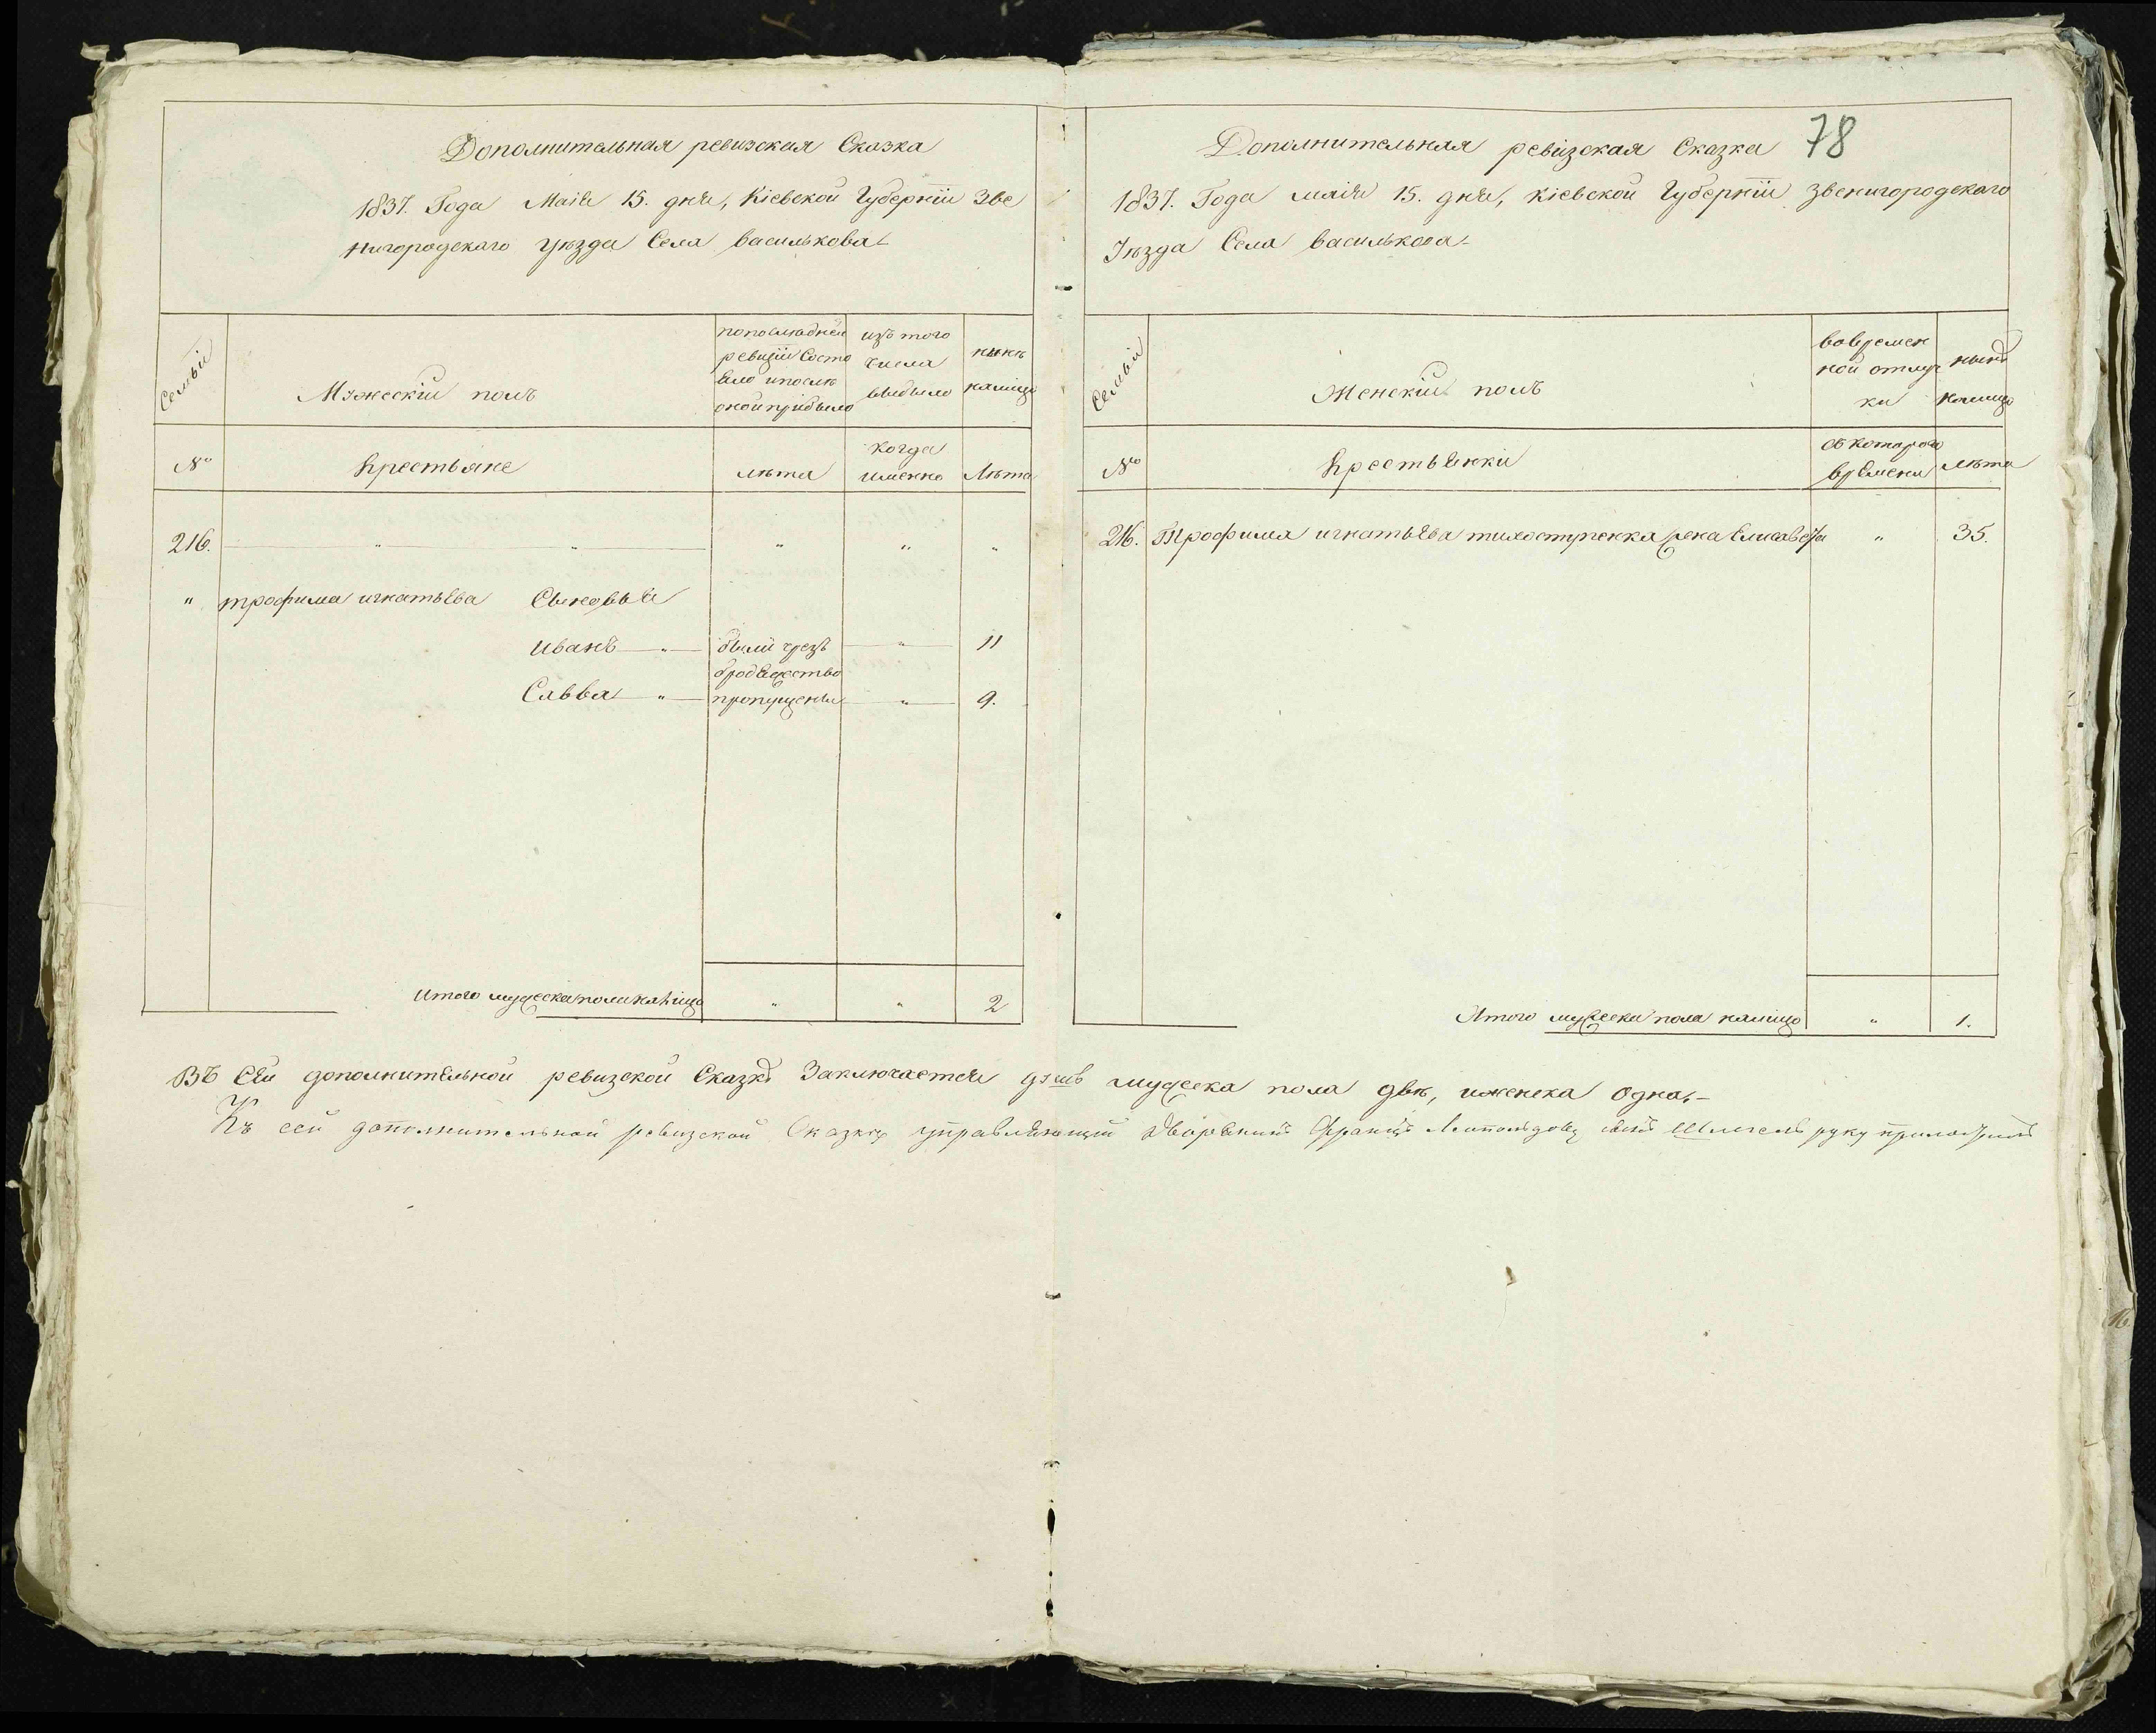 Дополнительная ревизская Сказка
1837. Года Маія 15. дня, Кіевской Губерніи Зве
нигородскаго уезда Села василькова
Семьи
Мужескій полъ
попоследней
ревизіи Состо
яло ипосле
оной прибыло
изъ того
числа
выбыло
ныне
налицо
№
Крестьяне
лета
когда
именно
Лета
216. " " " " "
" трофима игнатьева Сыновья
иванъ " были чрезъ " 11
бродяжество
Савва " пропущены " 9.
Итого мужеска пола налицо " " 2
78
Дополнительная ревизская Сказка
1837. Года маія 15. дня, Кіевской Губерніи звенигородскаго
Уезда Села василькова
Семьи
Женскій полъ
вовремен
ной отлуч
ки
ныне
налицо
№
Крестьянки
съ котораго
времени
лета
216. Трофима игнатьева жена Елисавета " 35.
Итого мужеска пола налицо " 1.
Въ сей дополнительной ревизской Сказке Заключается душъ мужеска пола две, иженска одна.
Къ сей дополнительной ревизской Сказке управляющій Дворянинъ Францъ Леопольдовъ сынъ руку приложилъ